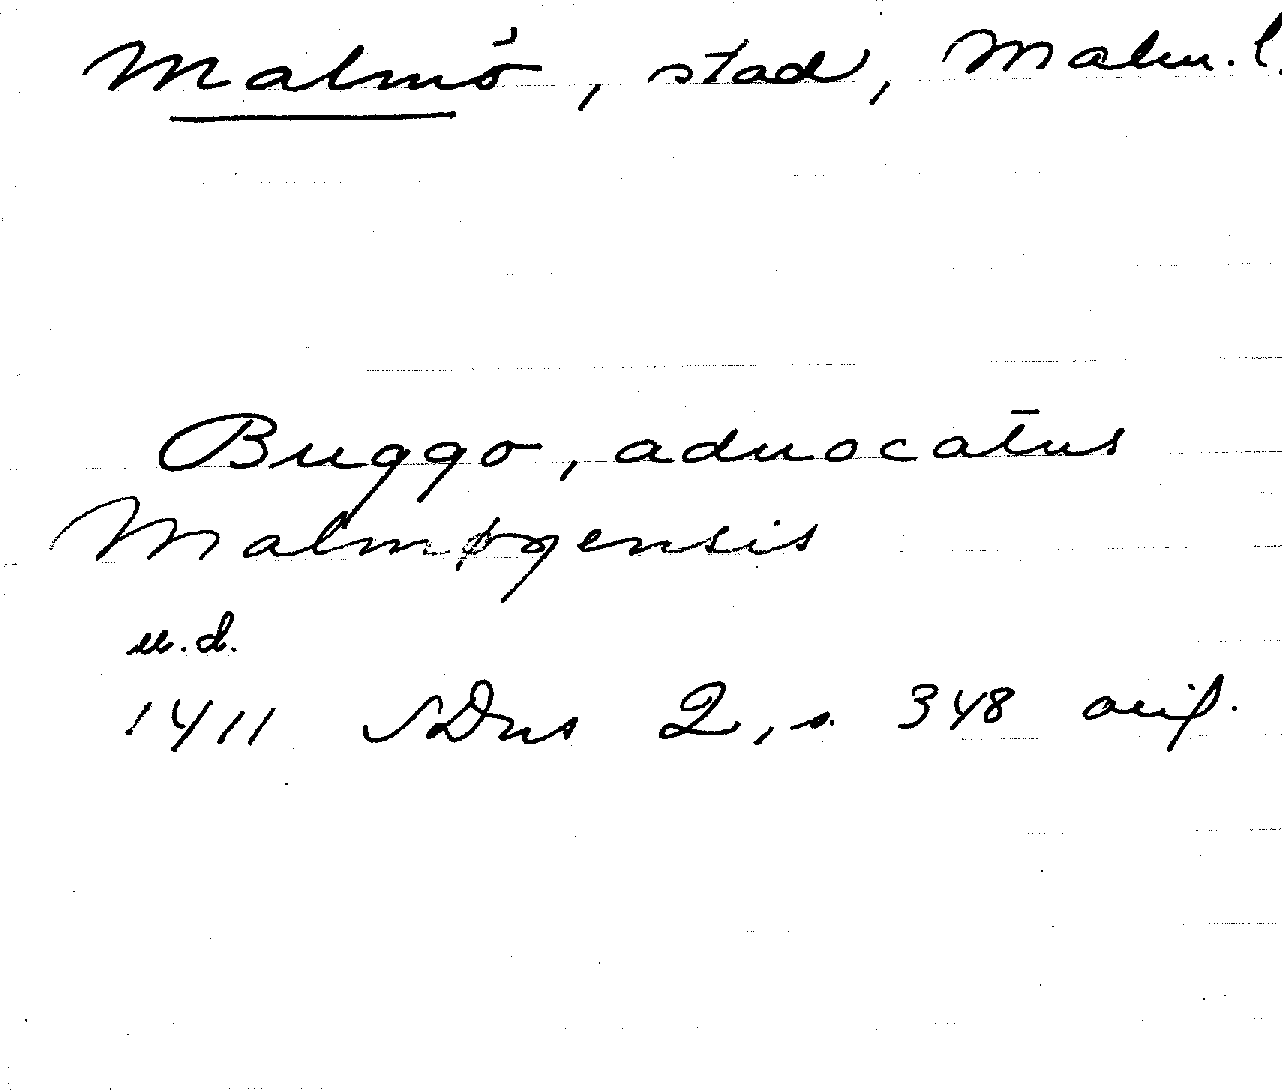 Malmö, stad, Malm. l.
Buggo, aduocatus
Malmøgensis
u.d.
1411 SDns 2, s. 348 avif.